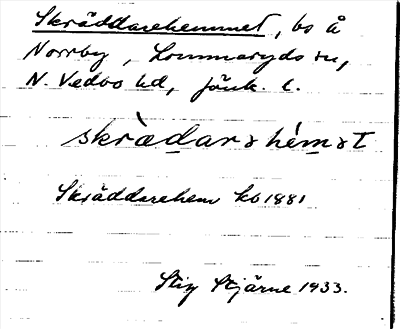 Skräddarehemmet, bs å
Norrby, Lommaryds sn,
N. Vedbo hd, Jönk. l.
skrädarəhémət
Skräddarehem kb 1881
Stig Stjärne 1933.